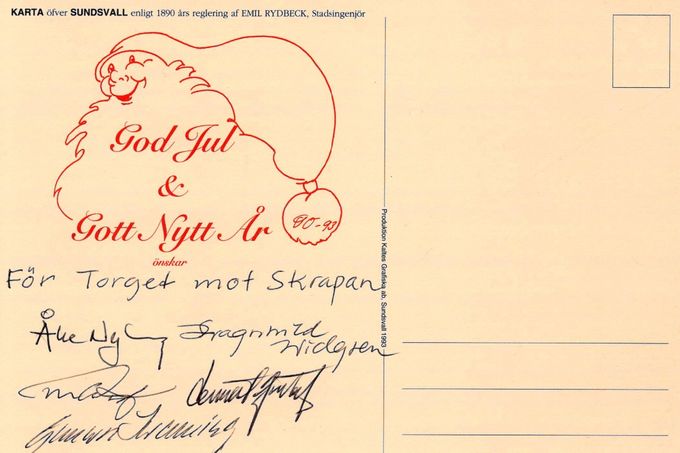 KARTA öfver SUNDSVALL enligt 1890 års reglering af EMIL RYDBECK, Stadsingenjör
God Jul
&
Gott Nytt År
90-93
önskar
För Torget mot Skrapan
Åke
Ragnhild
Widgren
Lennart
Gunnar
Produktion Kaltes Grafiska ab, Sundsvall 1993